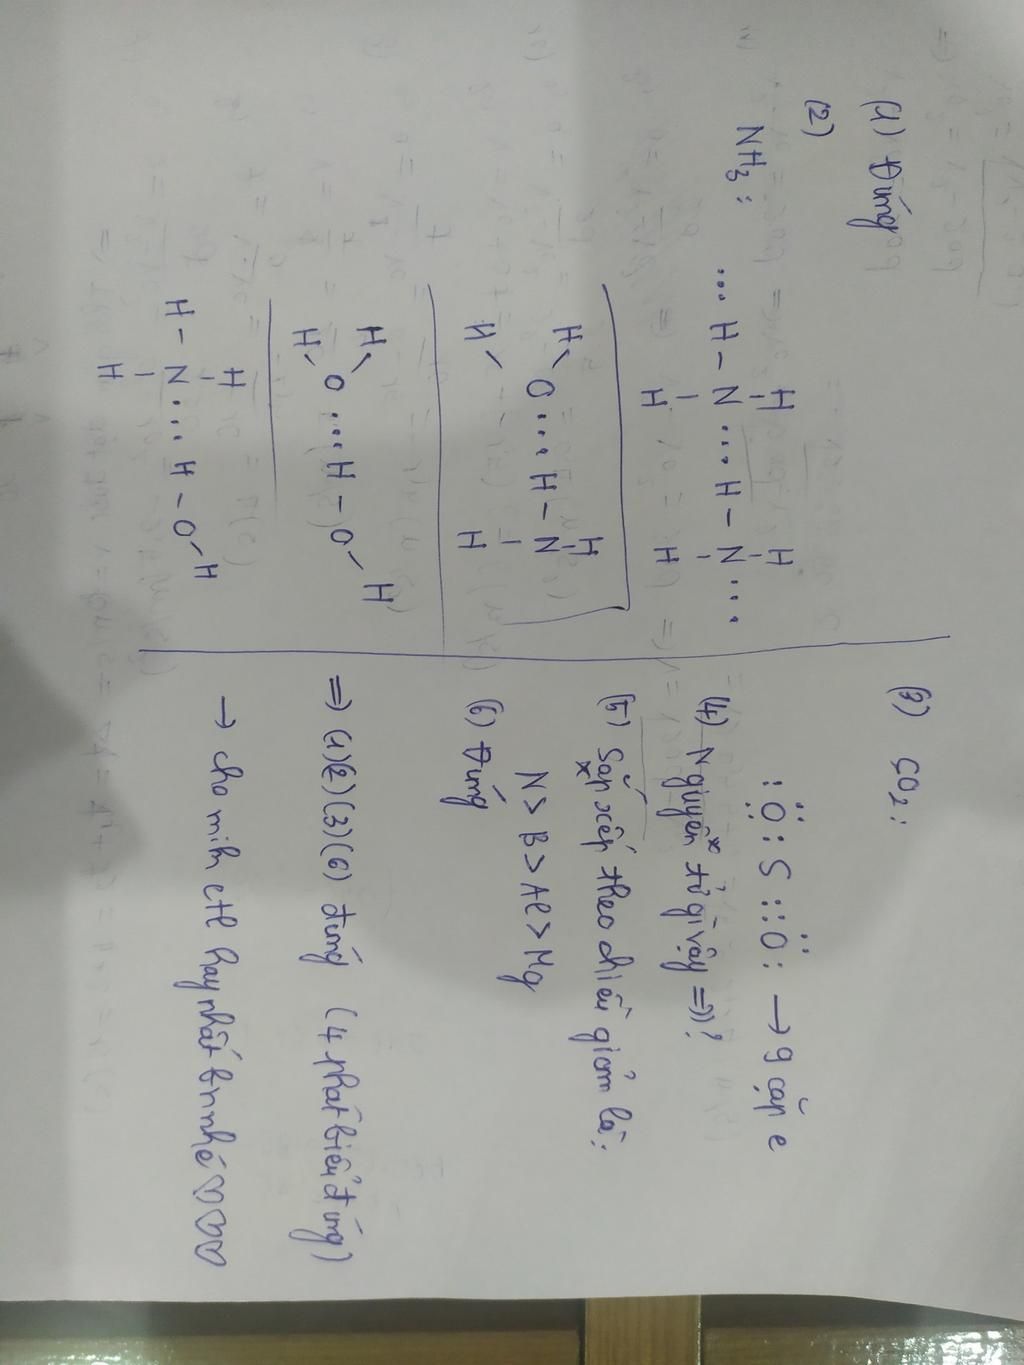 (1) Đúng
(2)
NH3:
... H - N ... H - N ...
H H
H H
H
O ... H - N
H
H H
H
O ... H - O
H
H
H
H - N ... H - O
H
H
(3) SO2:
:O:S::O: → 9 cặp e
(4) Nguyên tử gì vậy =))?
(5) Sắp xếp theo chiều giảm là:
N > B > Al > Mg
(6) Đúng
=> (1)(2)(3)(6) đúng (4 phát biểu đúng)
→ cho mình ctl hay nhất bn nhé ♡♡♡